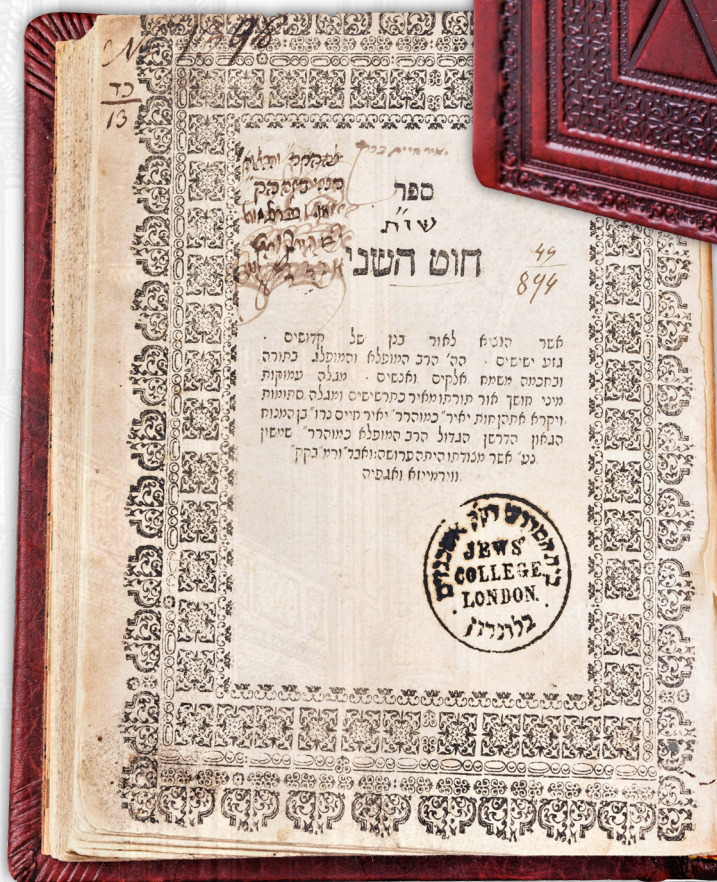 1898
כד
13
ספר
שו״ת
חוט השני
49
894
אשר הוציא לאור בנן של קדושים .
גזע ישישים . הה' הרב המופלא והמופלג בתורה
ובחכמה משמח אלקים ואנשים . מגלה עמוקות
מיני חושך אור תורתו מאיר בתרשישים ומגלה סתומות
ויקרא אתהן חות יאיר" כמוהרר" יאיר חיים נרו" בן המנוח
הגאון הדרשן הגדול הרב המופלא כמוהרר" שמשון
זצ"ל אשר היתה פרושה
ווירמייזא ואגפיה
בית המדרש דק"ק אשכנזים
JEWS'
COLLEGE,
LONDON.
בלונדון